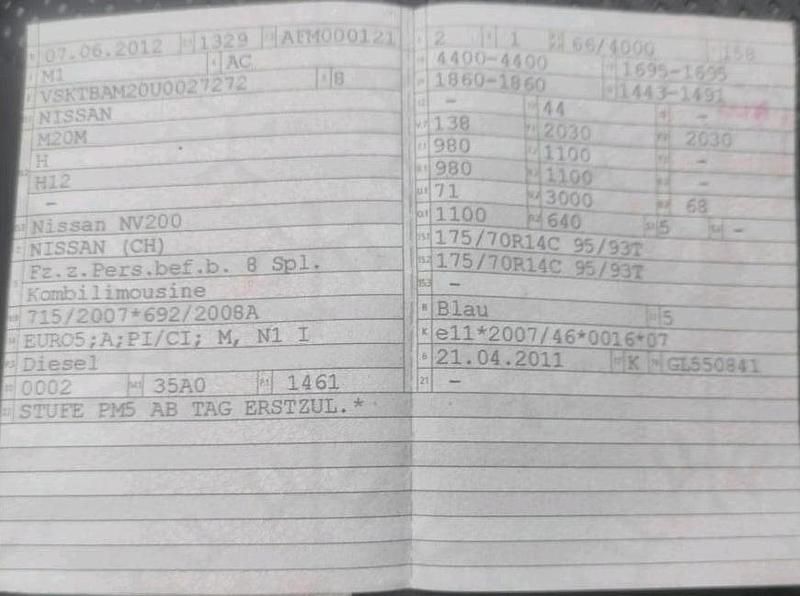 07.06.2012 1329 AFM000121
M1 AC
VSKTBAM20U0027272 8
NISSAN
M20M
H
H12
–
Nissan NV200
NISSAN (CH)
Fz.z.Pers.bef.b. 8 Spl.
Kombilimousine
715/2007*692/2008A
EURO5;A;PI/CI; M, N1 I
Diesel
0002 35A0 1461
STUFE PM5 AB TAG ERSTZUL.*
2 1 66/4000 158
4400-4400 1695-1695
1860-1860 1443-1491
– 44 –
138 2030 2030
980 1100 –
980 1100 –
71 3000 68
1100 640 5 –
175/70R14C 95/93T
175/70R14C 95/93T
–
Blau 5
e11*2007/46*0016*07
21.04.2011 K GL550841
21 –